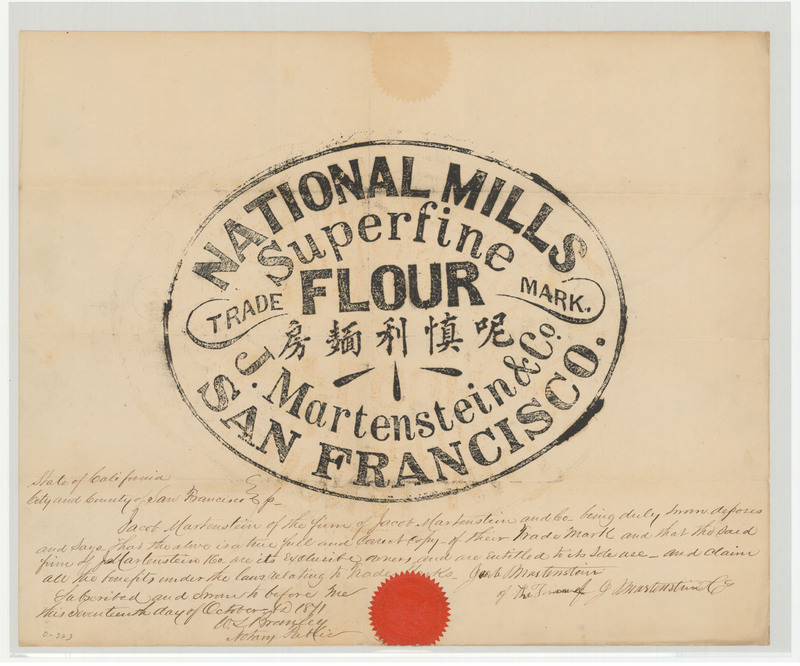 NATIONAL MILLS
Superfine
TRADE FLOUR MARK.
房麵利慎呢
J. Martenstein & Co.
SAN FRANCISCO.
State of California
City and County of San Francisco
Jacob Martenstein of the firm of Jacob Martenstein and Co. being duly sworn deposes
and says that the above is a true full and correct copy of their Trade Mark and that the said
firm of J Martenstein & Co are its exclusive owners and are entitled to its sole use – and claim
all the benefits under the laws relating to trade marks – Jacob Martenstein
of the Firm of J Martenstein & Co
Subscribed and sworn to before me
this seventeenth day of October 1871
Notary Public